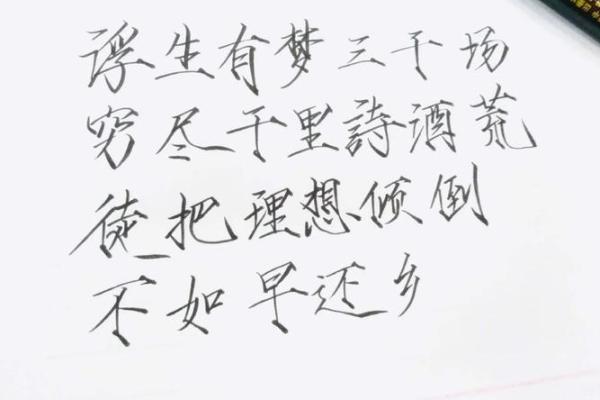 浮生有梦三千场
穷尽千里詩酒荒
徒把理想倾倒
不如早还乡